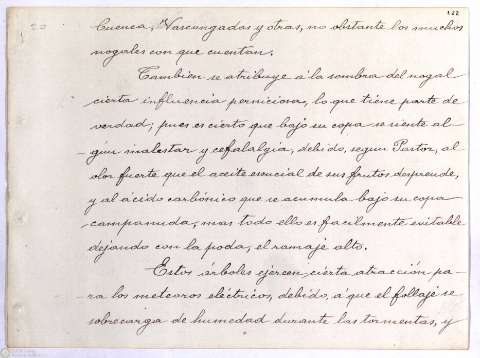 122
Cuenca, Vascongadas y otras, no obstante los muchos
nogales con que cuentan.
Tambien se atribuye á la sombra del nogal
cierta influencia perniciosa, lo que tiene parte de
verdad; pues es cierto que bajo su copa se siente al-
-gún malestar y cefalalgia, debido, segun Pastor, al
olor fuerte que el aceite esencial de sus frutos desprende,
y al ácido carbónico que se acumula bajo su copa
campanuda, mas todo ello es facilmente evitable
dejando con la poda, el ramaje alto.
Estos árboles ejercen cierta atracción pa-
-ra los meteoros eléctricos, debido, á que el follaje se
sobrecarga de humedad durante las tormentas, y